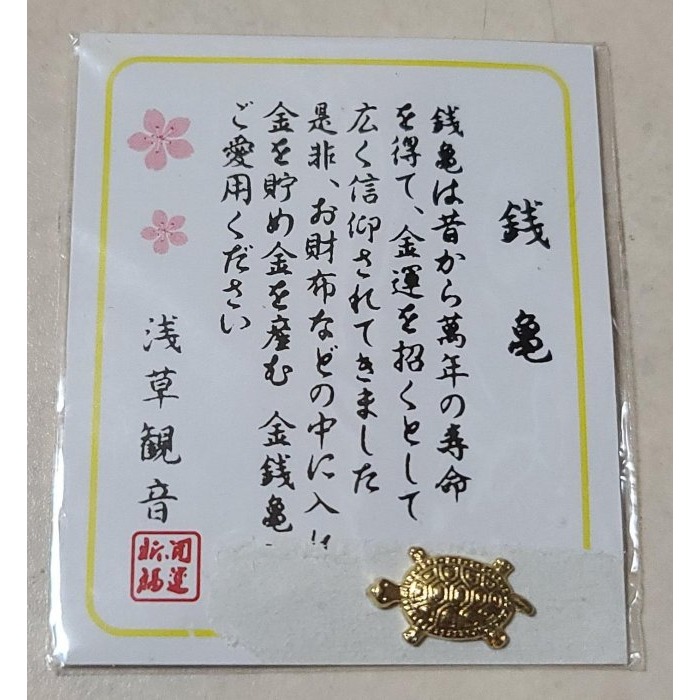 銭亀
銭亀は昔から萬年の寿命
を得て、金運を招くとして
広く信仰されてきました
是非、お財布などの中に入
金を貯め金を産む 金銭亀
ご愛用ください
浅草観音
開運
祈福